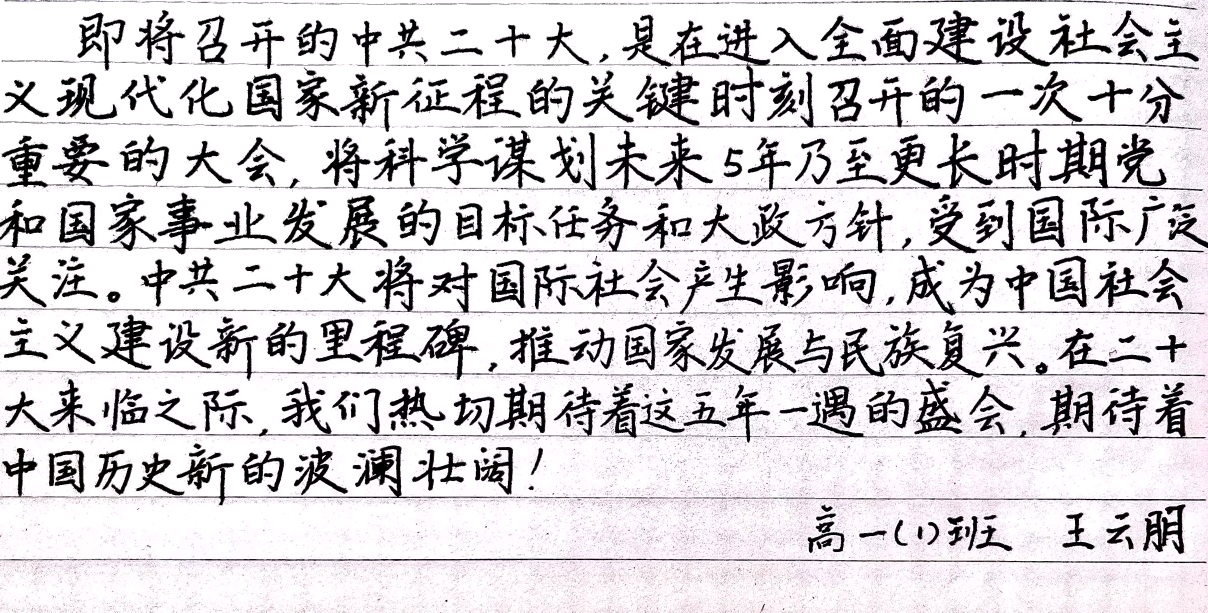 即将召开的中共二十大,是在进入全面建设社会主
义现代化国家新征程的关键时刻召开的一次十分
重要的大会,将科学谋划未来5年乃至更长时期党
和国家事业发展的目标任务和大政方针,受到国际广泛
关注。中共二十大将对国际社会产生影响,成为中国社会
主义建设新的里程碑,推动国家发展与民族复兴。在二十
大来临之际,我们热切期待着这五年一遇的盛会,期待着
中国历史新的波澜壮阔!
高一(1)班 王云朋